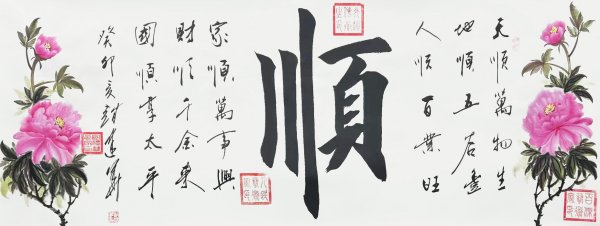 天順萬物生
地順五谷豐
人順百業旺
順
家順萬事興
財順千金來
國順享太平
癸卯